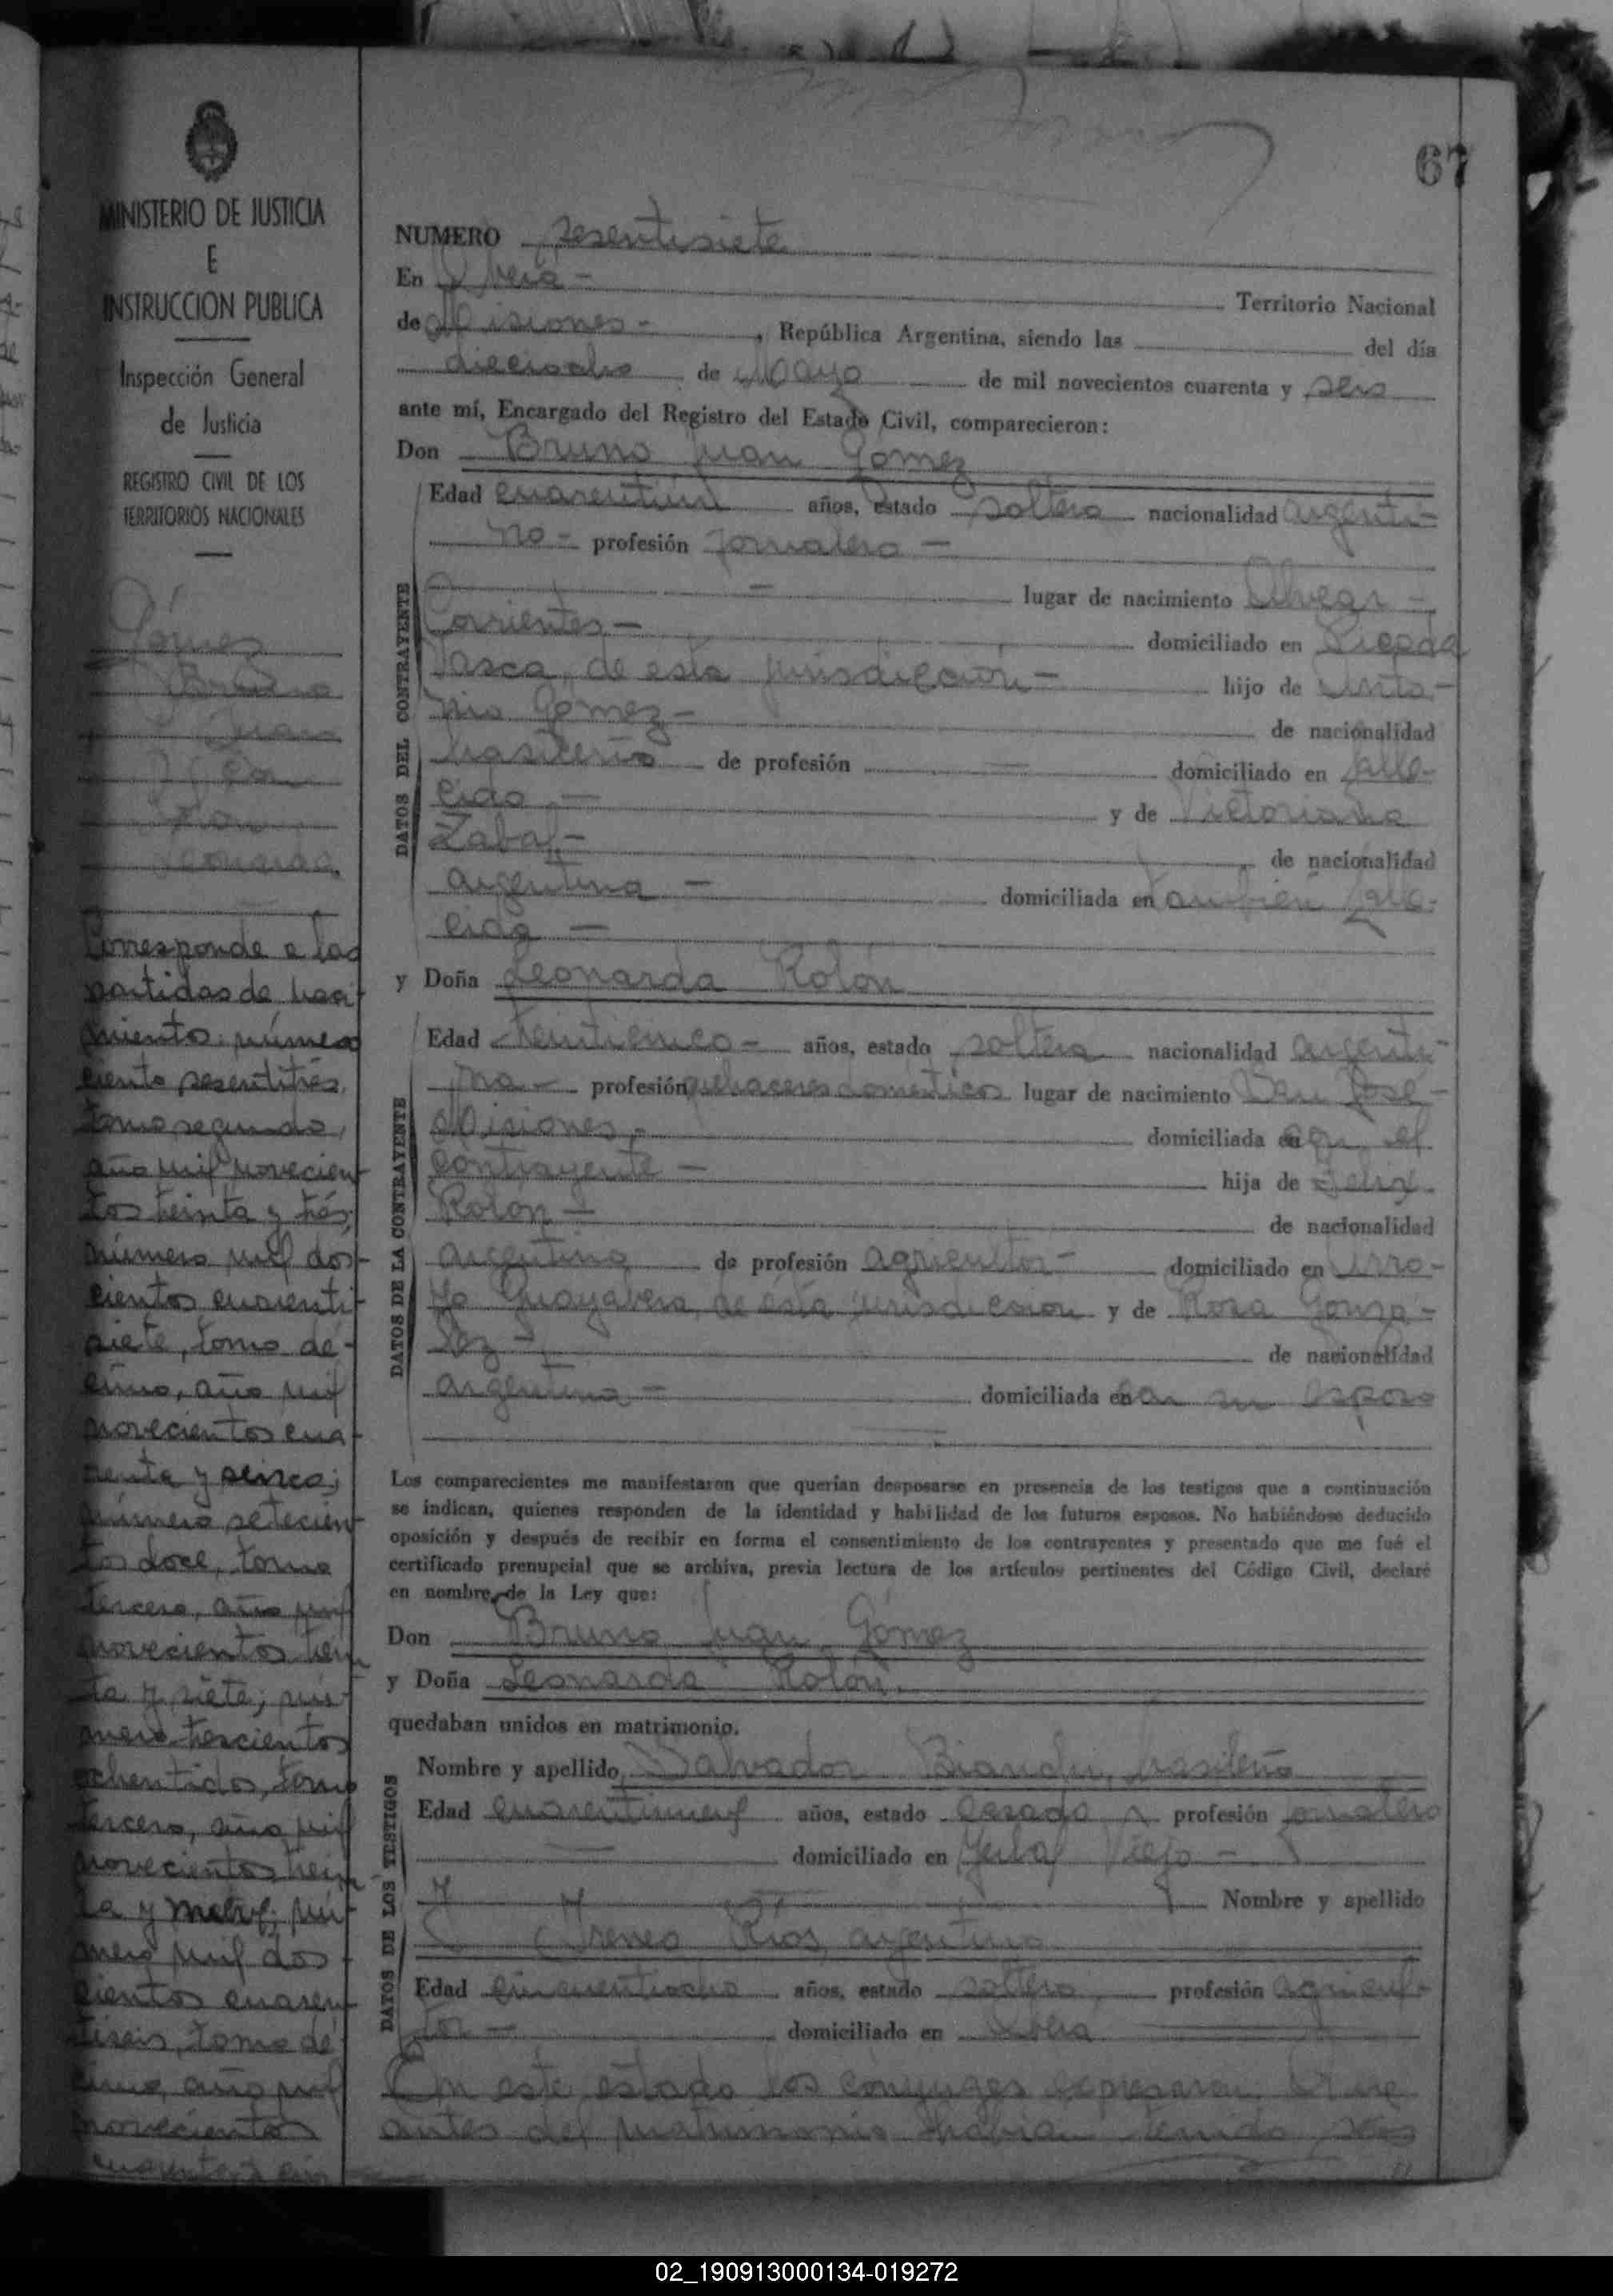 67
MINISTERIO DE JUSTICIA
E
INSTRUCCION PUBLICA
Inspección General
de Justicia
REGISTRO CIVIL DE LOS
TERRITORIOS NACIONALES
Gómez
Bruno
Juan
con
Rolón
Leonarda
Corresponde a las
partidas de naci-
miento: número
ciento sesentitrés,
tomo segundo,
año mil novecien-
tos treinta y trés;
número mil dos-
cientos cuarenti-
siete, tomo dé-
cimo, año mil
novecientos cua-
renta y cinco;
número setecien-
tos doce, tomo
tercero, año mil
novecientos trein-
ta y siete; nú-
mero trescientos
ochentidos, tomo
tercero, año mil
novecientos trein-
ta y nueve; nú-
mero mil dos-
cientos cuaren-
tiseis, tomo dé-
cimo, año mil
novecientos
cuarenta y cin
NUMERO sesentisiete
En Oberá -
Territorio Nacional
de Misiones - , República Argentina, siendo las del día
dieciocho de Mayo de mil novecientos cuarenta y seis
ante mí, Encargado del Registro del Estado Civil, comparecieron:
Don Bruno Juan Gómez
DATOS DEL CONTRAYENTE
Edad cuarentiún años, estado soltero nacionalidad argenti-
no - profesión jornalero -
- lugar de nacimiento Alvear -
Corrientes - domiciliado en Picada
Vasca, de esta jurisdicción - hijo de Anto-
nio Gómez - de nacionalidad
brasileño de profesión - domiciliado en falle-
cido - y de Victoriana
Zabal - de nacionalidad
argentina - domiciliada en también falle-
cida -
y Doña Leonarda Rolón
DATOS DE LA CONTRAYENTE
Edad treinticinco - años, estado soltera nacionalidad argenti-
na - profesión quehaceres domésticos lugar de nacimiento San José -
Misiones - domiciliada en con el
contrayente - hija de Felix
Rolon - de nacionalidad
argentino de profesión agricultor - domiciliado en Arro-
yo Guayabera, de esta jurisdiccion y de Rosa Gonza-
lez - de nacionalidad
argentina - domiciliada en con su esposo
Los comparecientes me manifestaron que querían desposarse en presencia de los testigos que a continuación
se indican, quienes responden de la identidad y habilidad de los futuros esposos. No habiéndose deducido
oposición y después de recibir en forma el consentimiento de los contrayentes y presentado que me fué el
certificado prenupcial que se archiva, previa lectura de los artículos pertinentes del Código Civil, declaré
en nombre de la Ley que:
Don Bruno Juan Gómez
y Doña Leonarda Rolón
quedaban unidos en matrimonio.
DATOS DE LOS TESTIGOS
Nombre y apellido Salvador Bianchi, brasileño
Edad cuarentinueve años, estado casado profesión jornalero
domiciliado en Yerbal Viejo -
Nombre y apellido
Ireneo Rios, argentino
Edad cincuentiocho años, estado soltero, profesión agricul-
tor - domiciliado en Oberá
En este estado los cónyuges expresaron: Que
antes del matrimonio habian tenido
02_190913000134-019272